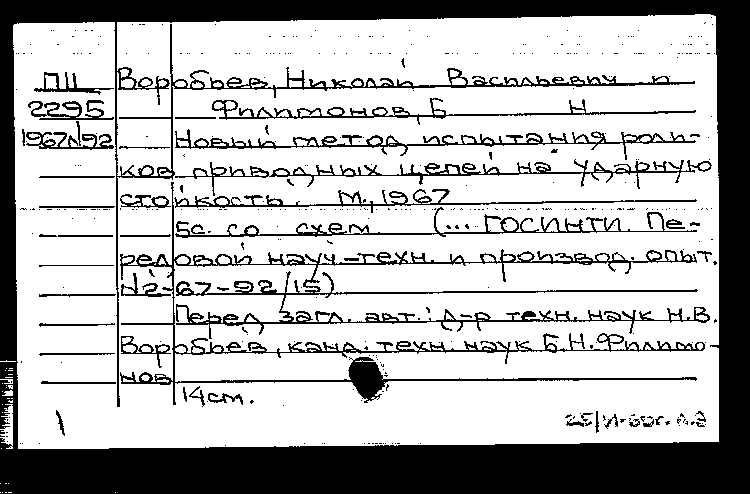 ПЦ Воробьев, Николай Васильевич и
2295 Филимонов, Б Н
1967№92 Новый метод испытания роли-
ков приводных цепей на ударную
стойкость. М., 1967
5с. со схем. (... ГОСИНТИ. Пе-
редовой науч.-техн. и производ. опыт.
№2-67-92/15)
Перед загл. авт.: д-р техн. наук Н.В.
Воробьев, канд. техн. наук Б.Н. Филимо-
нов
14см.
1